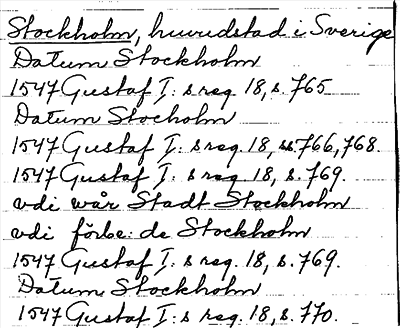 Stockholm, huvudstad i Sverige
Datum Stockholm
1547 Gustaf I: s reg. 18, s. 765
Datum Stocholm
1547 Gustaf I: s reg. 18, ss. 766, 768.
1547 Gustaf I: s reg. 18, s. 769.
vdi wår Stadt Stockholm
vdi förbe: de Stockholm
1547 Gustaf I: s reg. 18, s. 769.
Datum Stockholm
1547 Gustaf I: s reg. 18, s. 770.